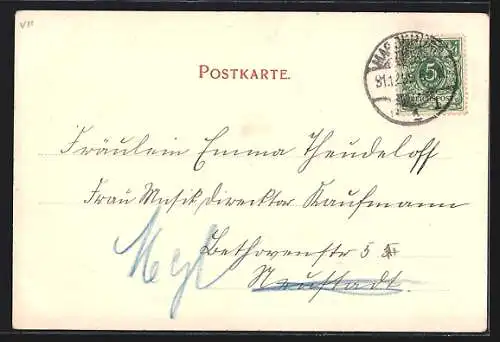 POSTKARTE.
5
31.12.
Fräulein Emma Theudeloff
Frau Musikdirektor Kaufmann
Bethovenstr 5 I
Neustadt.